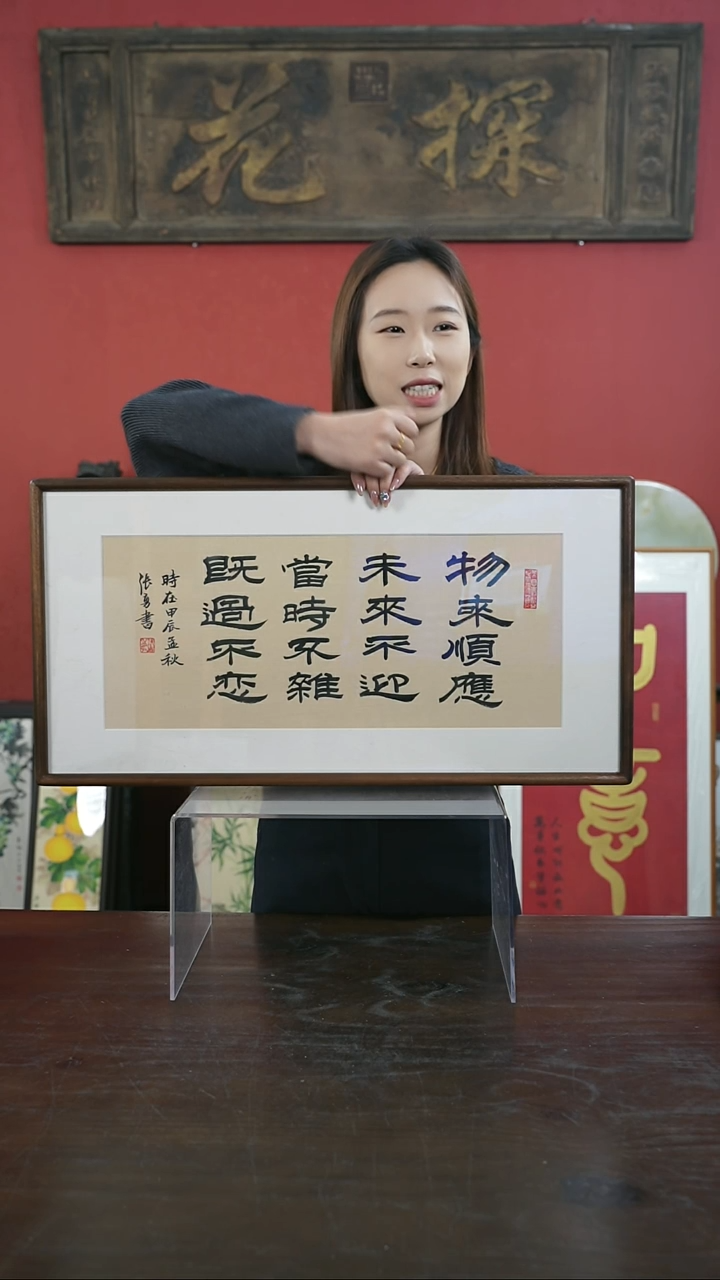 探花
物來順應
未來不迎
當時不雜
既過不恋
時在甲辰孟秋
張勇書